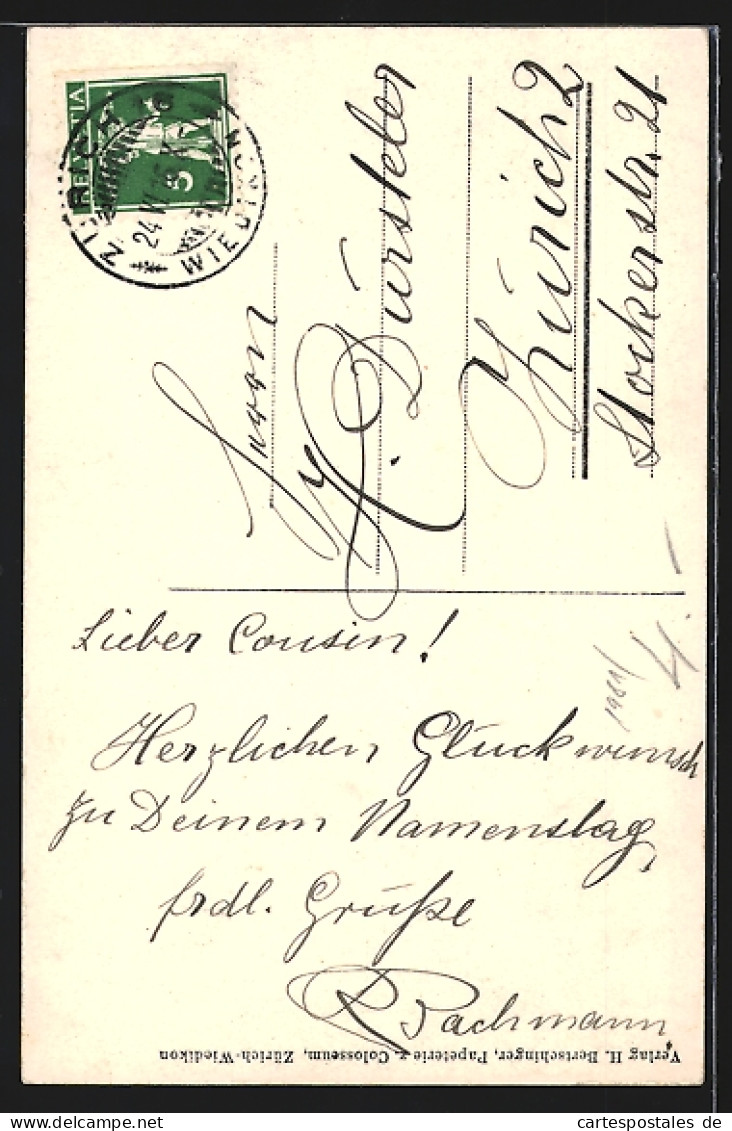 HELVETIA
5
ZÜRICH
WIEDIKON
24 VI
Herrn
H. Bürsteler
Zürich 2
Stockerstr. 21
Lieber Cousin!
Herzlichen Glückwunsch
zu Deinem Namenstag,
frdl. Grüße
R. Bachmann
Verlag H. Bertschinger, Papeterie z. Colosseum, Zürich-Wiedikon
www.cartespostales.de